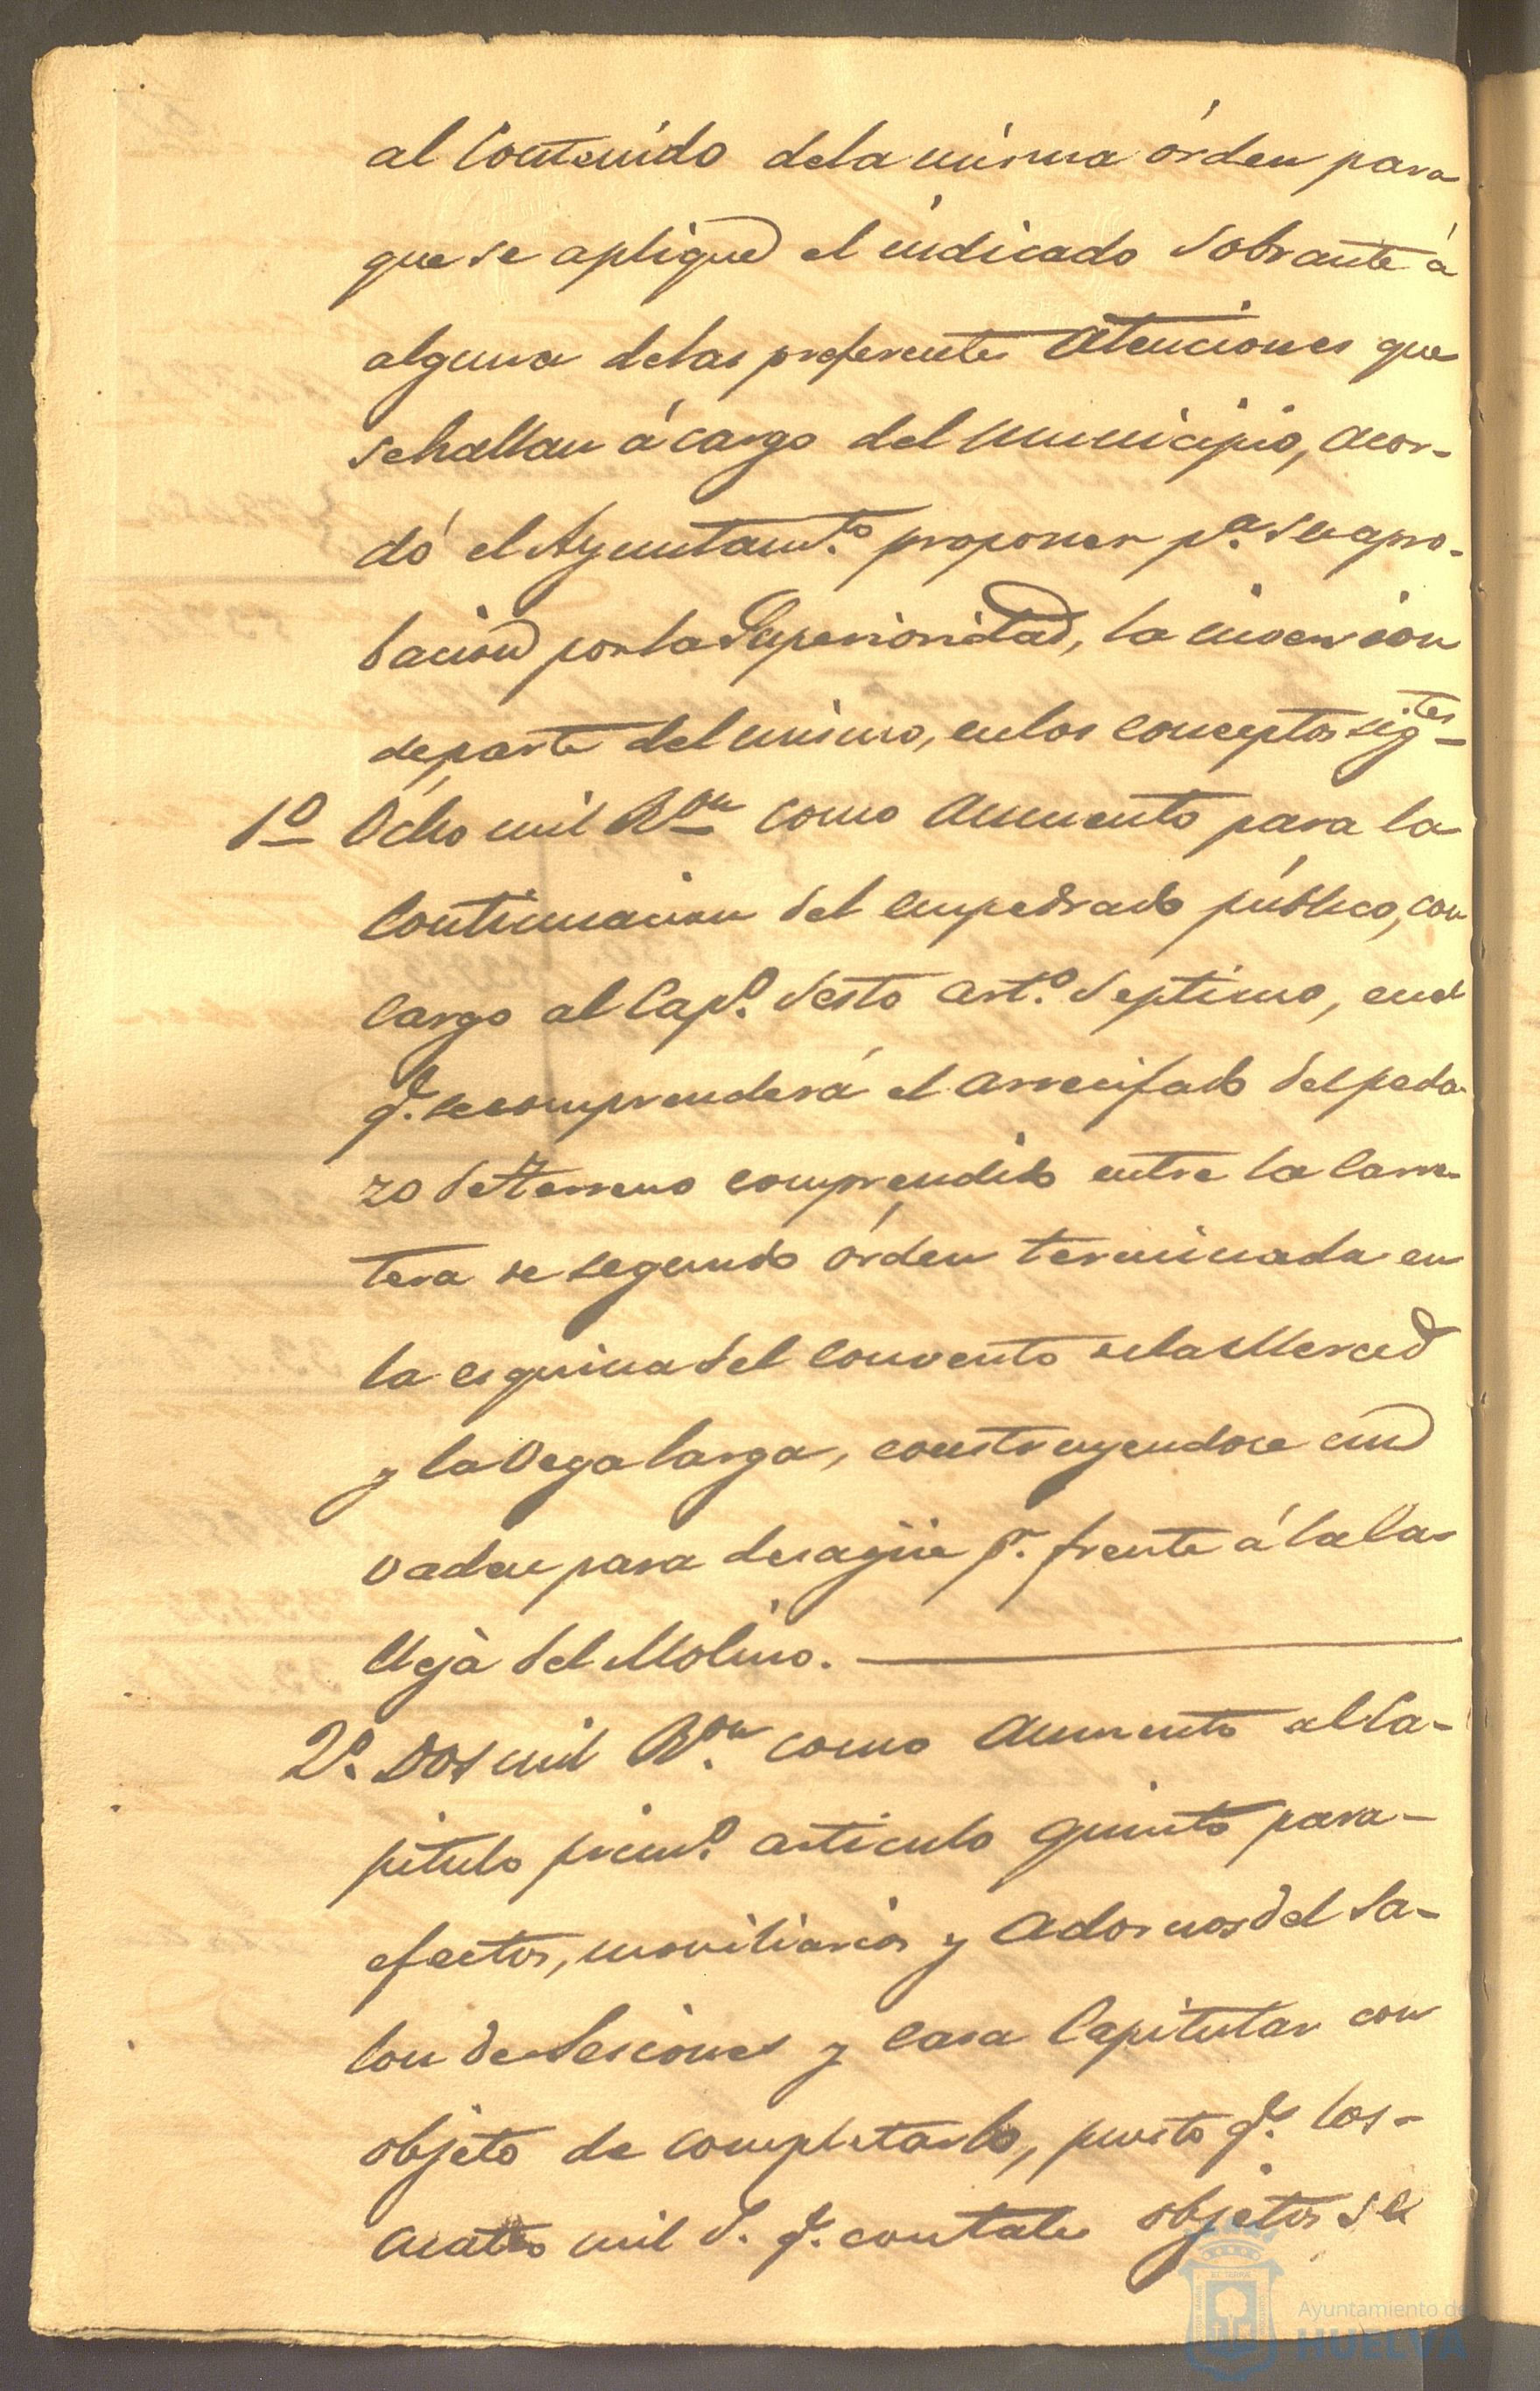 al Contenido dela misma órden para
que se aplique el indicado Sobrante á
alguna delas preferentes Atenciones que
se hallan á cargo del Municipio, acor-
dó el Ayuntamto proponer pa. su apro-
bacion por la Superioridad, la insersion
de parte del mismo, en los conceptos sigtes
1o Ocho mil Ron como Aumento para la
Continuacion del empedrado público, con
Cargo al Capo. Sesto arto. Septimo, en el
q. se comprenderá el arrecifado del peda-
zo de terreno comprendido entre la Carre-
tera de segundo órden terminada en
la esquina del Convento de la Merced
y la Vega larga, construyendose un
vaden para desagüe pr. frente á la Ca-
lleja del Molino.
2o. Dos mil Ron. como Aumento al Ca-
pitulo primo. articulo quinto para
efectos, moviliarios y Adornos del Sa-
lon de Sesiones y Casa Capitular con
objeto de completarlo, puesto q. los
cuatro mil q. con tales objetos se
Ayuntamiento de
HUELVA